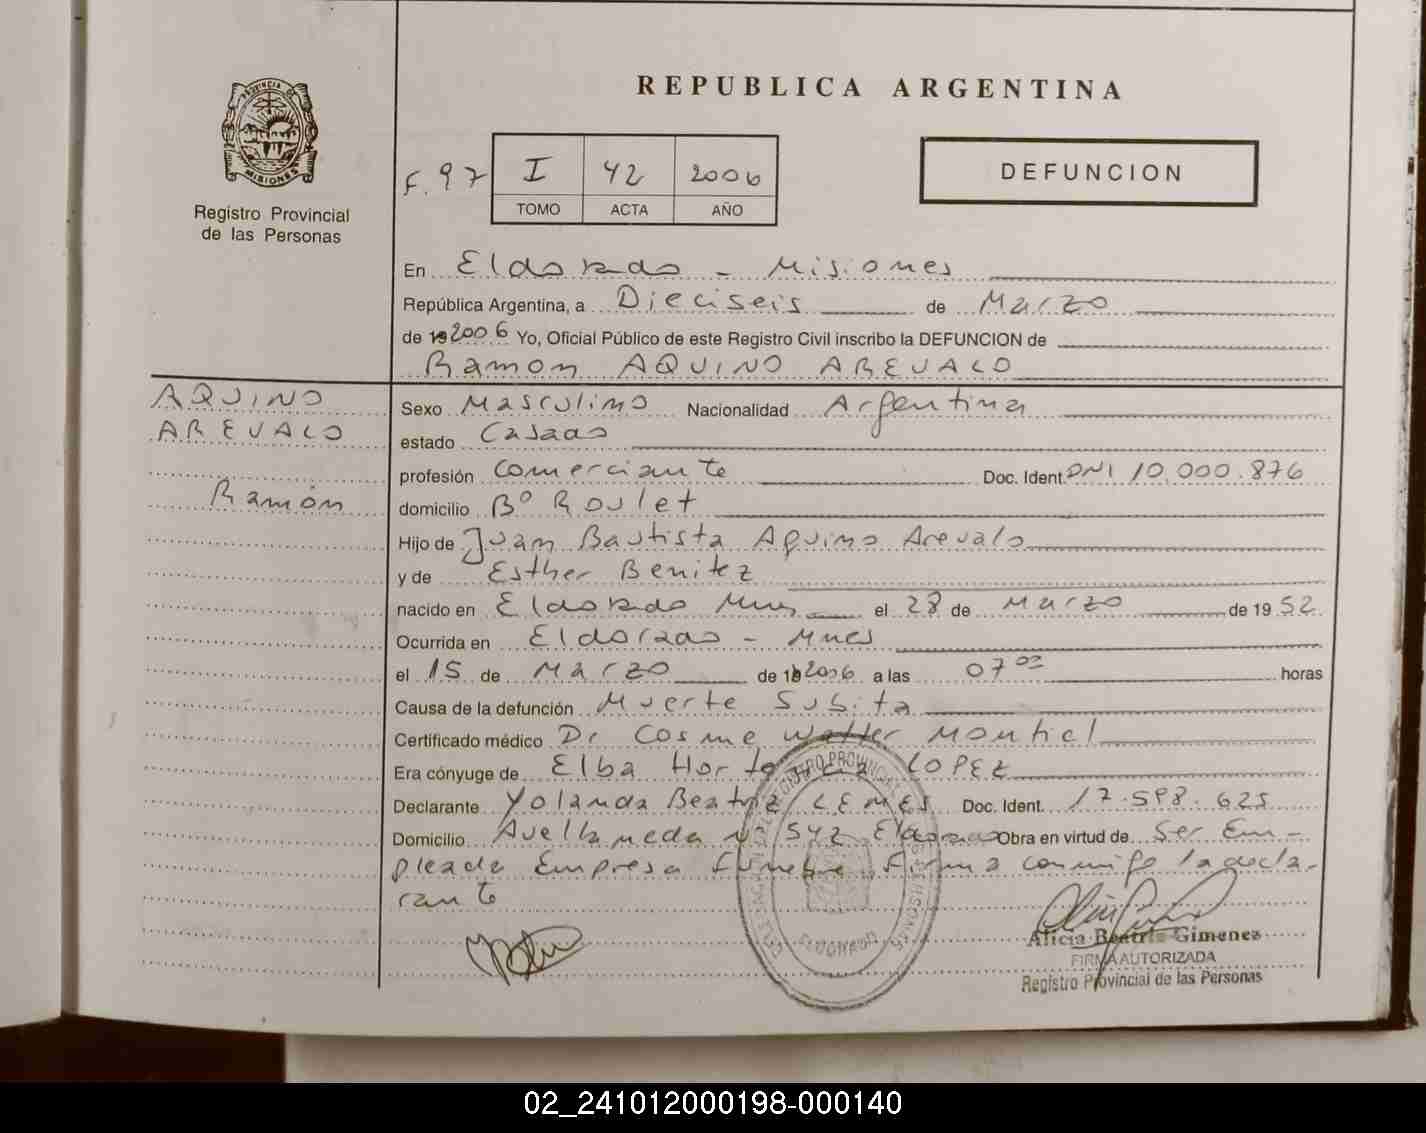 REPUBLICA ARGENTINA
PROVINCIA DE
MISIONES
Registro Provincial
de las Personas
F. 97
I 42 2006
TOMO ACTA AÑO
DEFUNCION
En Eldorado - Misiones
República Argentina, a Dieciseis de Marzo
de 19 2006 Yo, Oficial Público de este Registro Civil inscribo la DEFUNCION de
Ramon AQUINO AREVALO
AQUINO
AREVALO
Ramón
Sexo Masculino Nacionalidad Argentina
estado Casado
profesión Comerciante Doc. Ident DNI 10.000.876
domicilio Bº Roulet
Hijo de Juan Bautista Aquino Arevalo
y de Esther Benitez
nacido en Eldorado Mnes el 28 de Marzo de 19 52
Ocurrida en Eldorado - Mnes
el 15 de Marzo de 2006 a las 07 00 horas
Causa de la defunción Muerte Subita
Certificado médico Dr Cosme Walter Montiel
Era cónyuge de Elba Hortencia LOPEZ
Declarante Yolanda Beatriz LEMES Doc. Ident. 17.598.625
Domicilio Avellaneda nº 542 Eldorado Obra en virtud de Ser Em-
pleada Empresa funebre. Firma conmigo la decla-
rante
Alicia Beatriz Gimenez
FIRMA AUTORIZADA
Registro Provincial de las Personas
ELDORADO
02_241012000198-000140